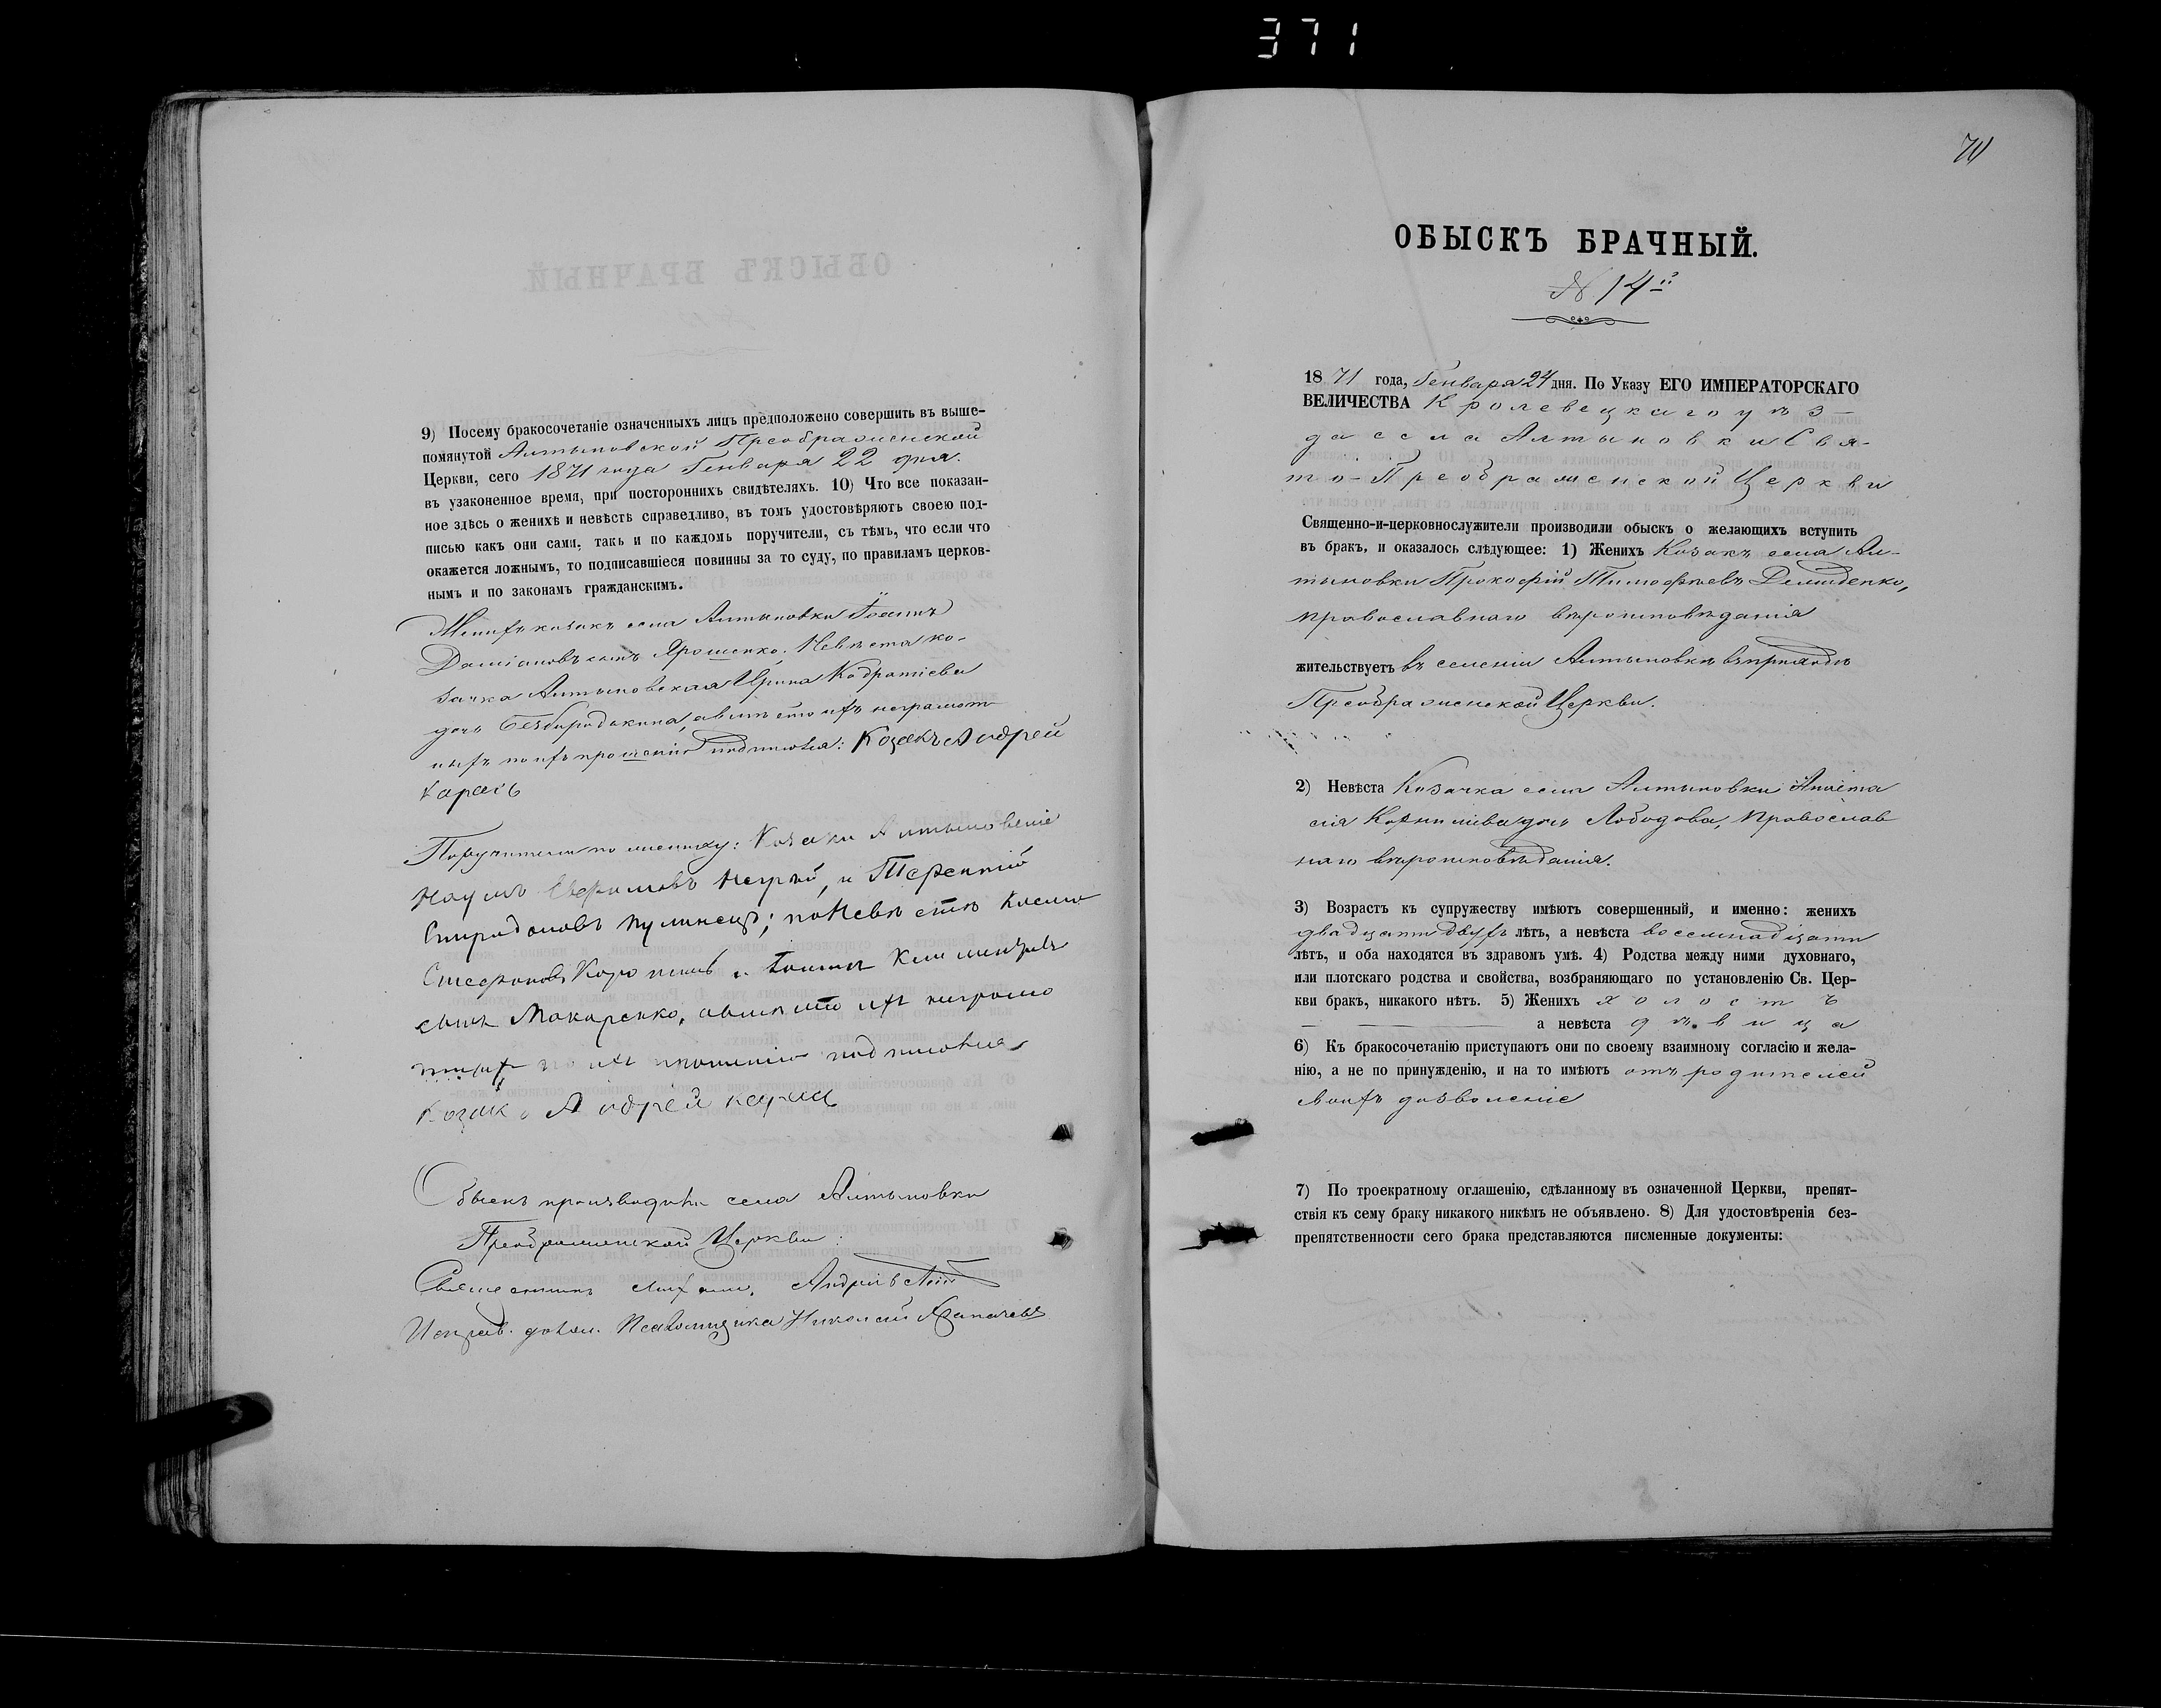 371
9) Посему бракосочетаніе означенныхъ лицъ предположено совершить въ выше-
помянутой Алтыновской Преображенской
Церкви, сего 1871 года Генваря 22 дня.
въ узаконенное время, при постороннихъ свидѣтеляхъ. 10) Что все показан-
ное здѣсь о женихѣ и невѣстѣ справедливо, въ томъ удостовѣряютъ своею под-
писью какъ они сами, такъ и по каждомъ поручители, съ тѣмъ, что если что
окажется ложнымъ, то подписавшіеся повинны за то суду, по правиламъ церков-
нымъ и по законамъ гражданскимъ.
Женихъ козакъ села Алтыновки Іоаннъ
Даміановъ сынъ Ярошенко; Невѣста ко-
зачка Алтыновская Ирина Кодратіева
дочь
прошенію подписался: Козакъ Андрей
Карась
Поручители по жениху: Козаки Алтыновскіе
Наумъ Евфимовъ и Терентій
по Невѣстѣ Косьма
Стефановъ и Іоаннъ
сынъ Макаренко, а вмѣсто ихъ неграмо
тныхъ по ихъ прошенію подписался
Козакъ Андрей Карась
Обыскъ производили села Алтыновки
Преображенской Церкви:
Священникъ
Исправ. долж. Псаломщика Николай
ОБЫСКЪ БРАЧНЫЙ.
№ 14й
1871 года, Генваря 24 дня. По Указу ЕГО ИМПЕРАТОРСКАГО
ВЕЛИЧЕСТВА Кролевецкаго уѣз-
да села Алтыновки Свя-
то-Преображенской Церкви
Священно-и-церковнослужители производили обыскъ о желающихъ вступить
въ бракъ, и оказалось слѣдующее: 1) Женихъ Козакъ села Ал-
тыновки Прокофій Тимофѣевъ Демиденко,
православнаго вѣроисповѣданія
жительствуетъ въ селеніи Алтыновкѣ въ приходѣ
Преображенской Церкви.
2) Невѣста Козачка села Алтыновки Анаста
сія дочь Лободова, Православ
наго вѣроисповѣданія.
3) Возрастъ къ супружеству имѣютъ совершенный, и именно: женихъ
двадцати двухъ лѣтъ, а невѣста восемнадцати
лѣтъ, и оба находятся въ здравомъ умѣ. 4) Родства между ними духовнаго,
или плотскаго родства и свойства, возбраняющаго по установленію Св. Цер-
кви бракъ, никакого нѣтъ. 5) Женихъ холостъ
а невѣста дѣвица
6) Къ бракосочетанію приступаютъ они по своему взаимному согласію и жела-
нію, а не по принужденію, и на то имѣютъ отъ родителей
своихъ дозволеніе
7) По троекратному оглашенію, сдѣланному въ означенной Церкви, препят-
ствія къ сему браку никакого никѣмъ не объявлено. 8) Для удостовѣренія без-
препятственности сего брака представляются писменные документы: